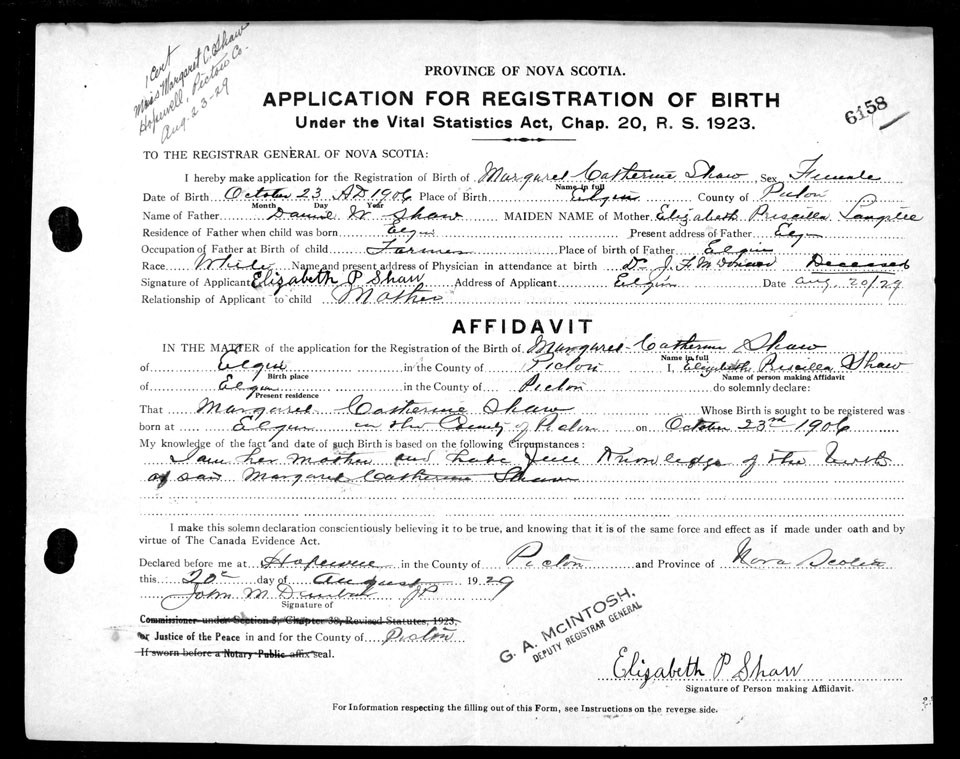 1 Cert
Miss Margaret C. Shaw
Hopewell, Pictou Co.
Aug. 23-29
PROVINCE OF NOVA SCOTIA.
APPLICATION FOR REGISTRATION OF BIRTH
6158
Under the Vital Statistics Act, Chap. 20, R. S. 1923.
TO THE REGISTRAR GENERAL OF NOVA SCOTIA:
I hereby make application for the Registration of Birth of Margaret Catherine Shaw Sex Female
Name in full
Date of Birth October 23 AD 1906 Place of Birth Elgin County of Pictou
Month Day Year
Name of Father Daniel W Shaw MAIDEN NAME of Mother Elizabeth Priscilla
Residence of Father when child was born Elgin Present address of Father Elgin
Occupation of Father at Birth of child Farmer Place of birth of Father Elgin
Race White Name and present address of Physician in attendance at birth Dr J. F. Deceased
Signature of Applicant Elizabeth P. Shaw Address of Applicant Elgin Date aug. 20/29
Relationship of Applicant to child Mother
AFFIDAVIT
IN THE MATTER of the application for the Registration of the Birth of Margaret Catherine Shaw
Name in full
of Elgin in the County of Pictou I, Elizabeth Priscilla Shaw
Birth place Name of person making Affidavit
of Elgin in the County of Pictou do solemnly declare:
Present residence
That Margaret Catherine Shaw Whose Birth is sought to be registered was
born at Elgin in the County of Pictou on October 23rd 1906
My knowledge of the fact and date of such Birth is based on the following Circumstances:
I am her mother and have full Knowledge of the birth
of said Margaret Catherine Shaw
I make this solemn declaration conscientiously believing it to be true, and knowing that it is of the same force and effect as if made under oath and by
virtue of The Canada Evidence Act.
Declared before me at Hopewell in the County of Pictou and Province of Nova Scotia
this 20th day of August 1929
John M. Dunbar JP
Signature of
Commissioner under Section 5, Chapter 38, Revised Statutes, 1923.
or Justice of the Peace in and for the County of Pictou
If sworn before a Notary Public affix seal.
G. A. MCINTOSH,
DEPUTY REGISTRAR GENERAL
Elizabeth P Shaw
Signature of Person making Affidavit.
For Information respecting the filling out of this Form, see Instructions on the reverse side.